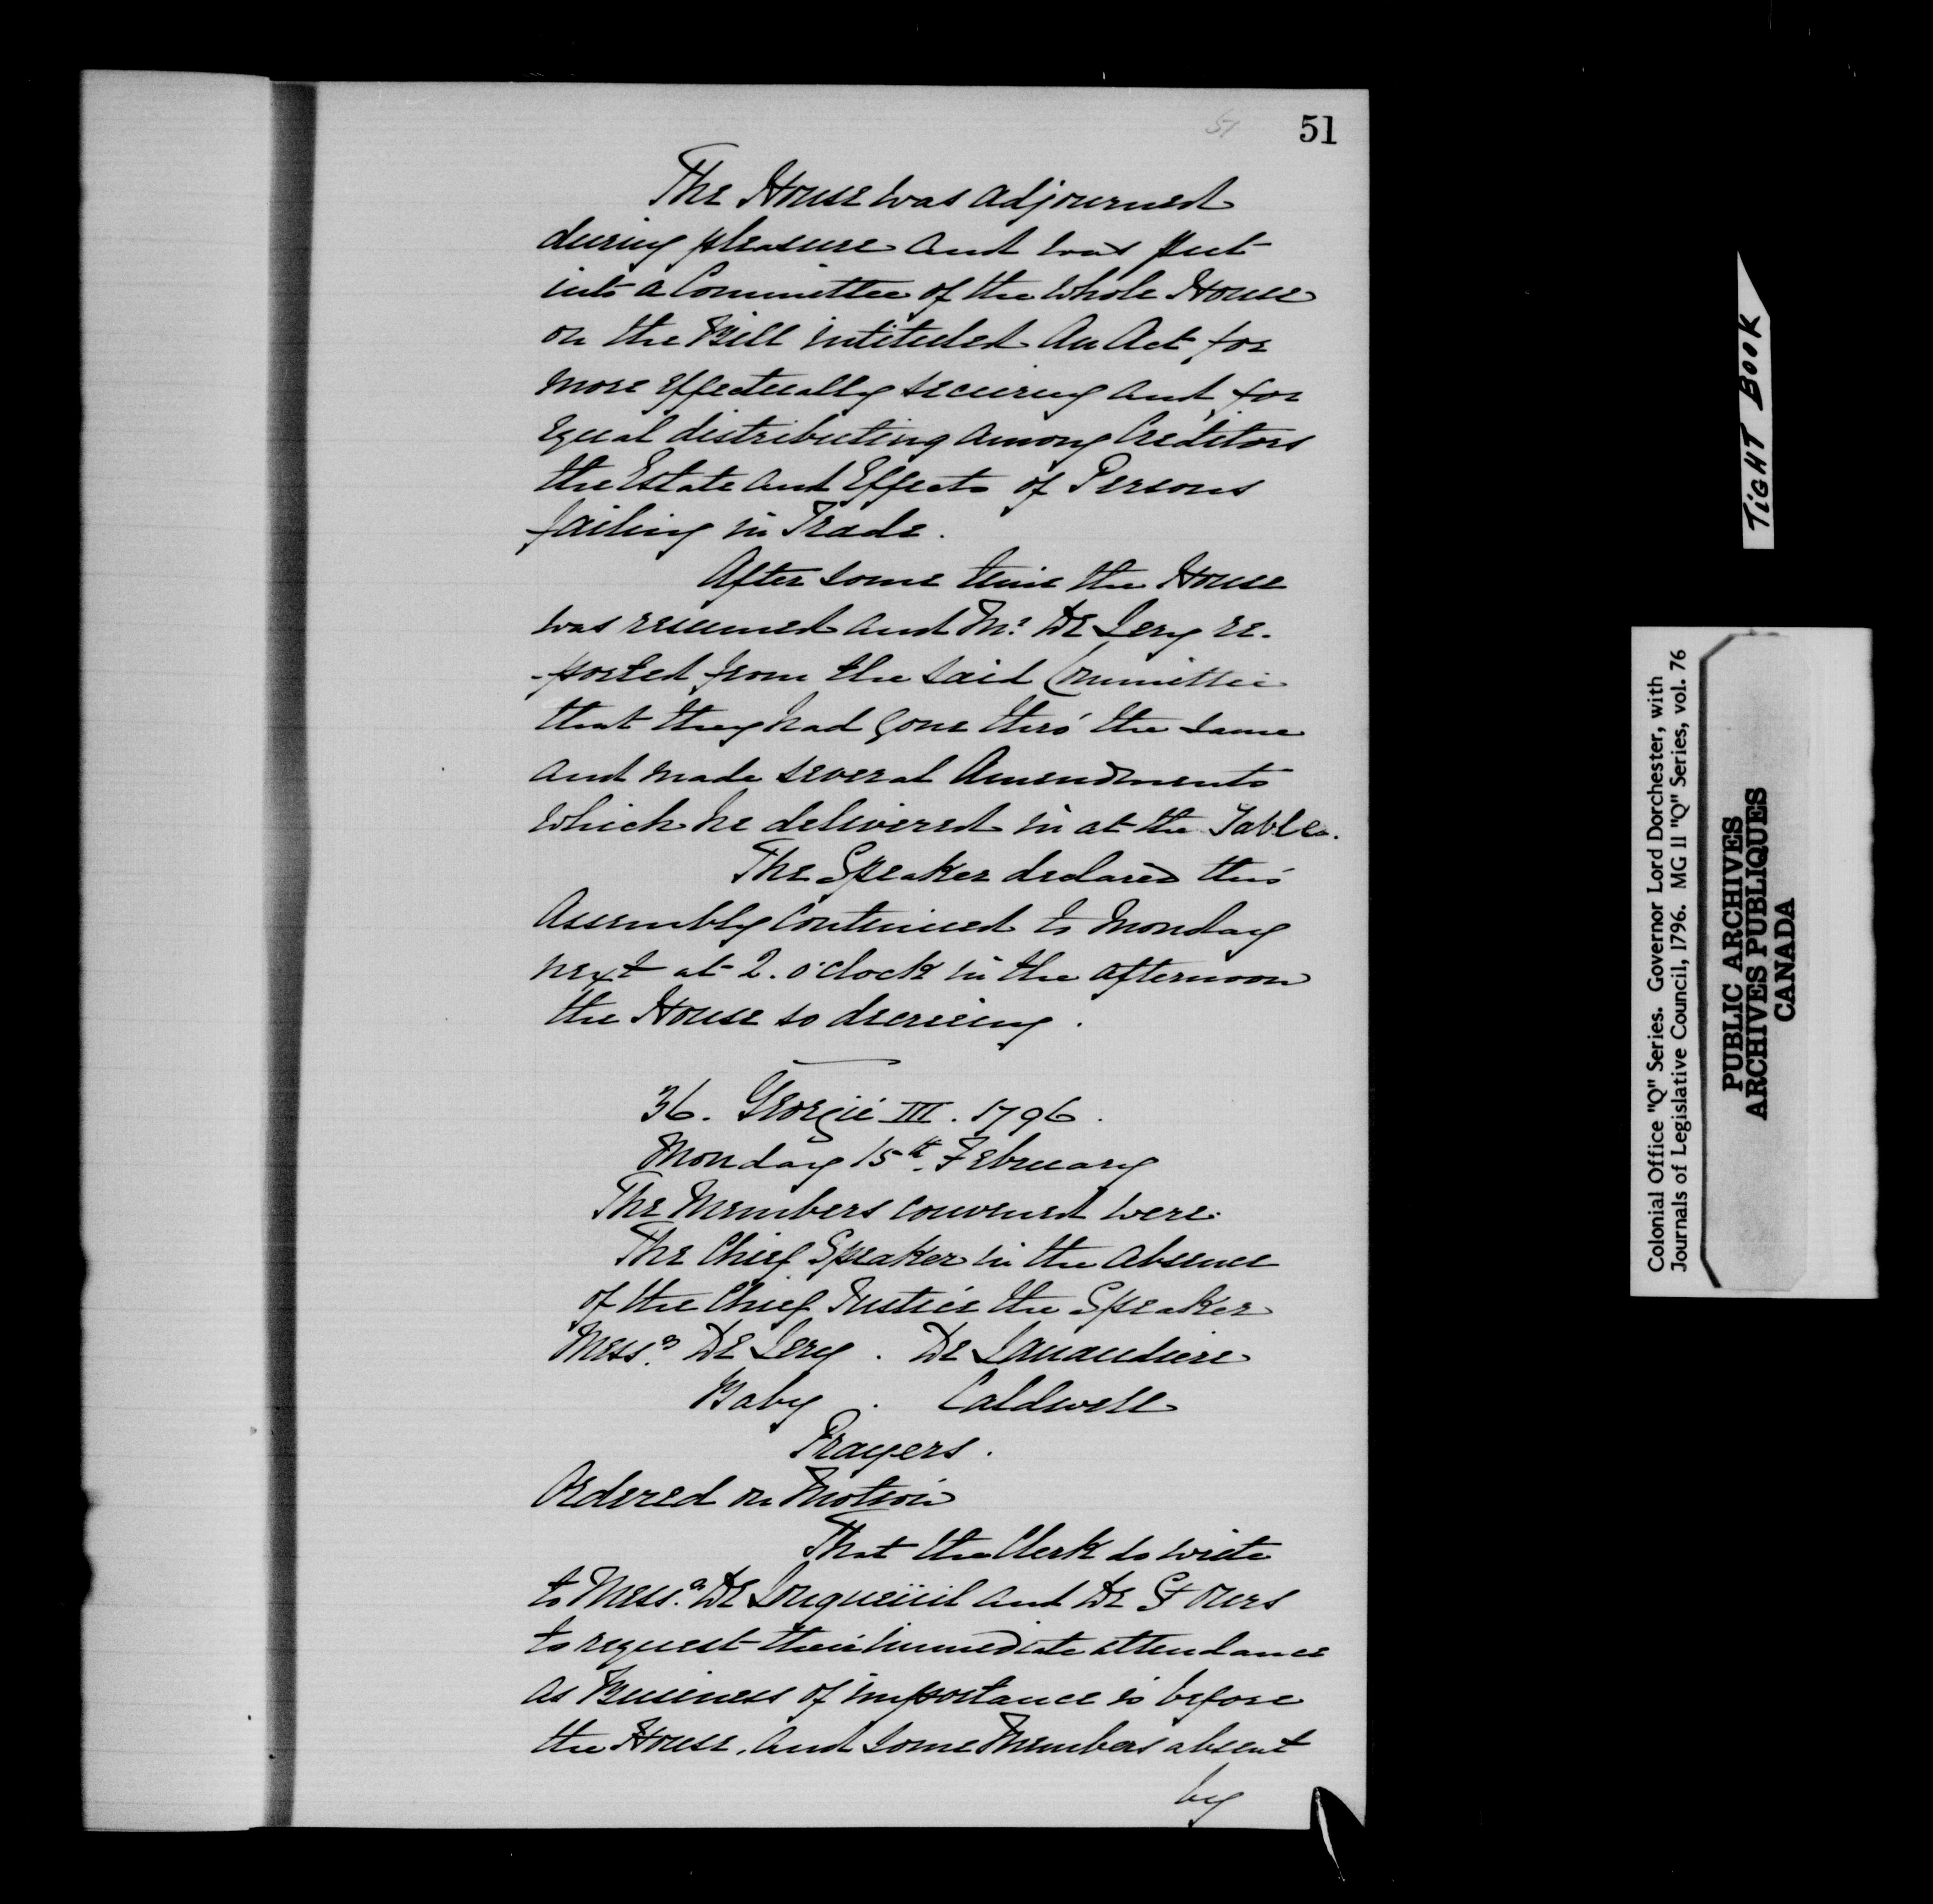 51
51
The House was adjourned
during pleasure and was put
into a Committee of the whole House
on the Bill intituled An Act for
more effectually securing and for
equal distributing among Creditors
the Estate and Effects of Persons
failing in Trade.
After some time the House
was resumed and Mr. De Lery re-
-ported from the said Committee
that they had gone thro' the same
and made several Amendments
which he delivered in at the Table.
The Speaker declared this
Assembly continued to Monday
next at 2. o'clock in the afternoon
the House so decreeing.
36. Georgii III. 1796.
Monday 15th. February
The Members convened were
The Chief Speaker in the absence
of the Chief Justice the Speaker
Messrs. De Lery. De Lanaudiere
Baby. Caldwell
Prayers.
Ordered on Motion
That the Clerk do write
to Messrs. De Longueüil and De St Ours
to request their immediate attendance
as Business of importance is before
the House, and some Members absent
by
TiGHT BOOK
Colonial Office "Q" Series. Governor Lord Dorchester, with
Journals of Legislative Council, 1796. MG 11 "Q" Series, vol. 76
PUBLIC ARCHIVES
ARCHIVES PUBLIQUES
CANADA